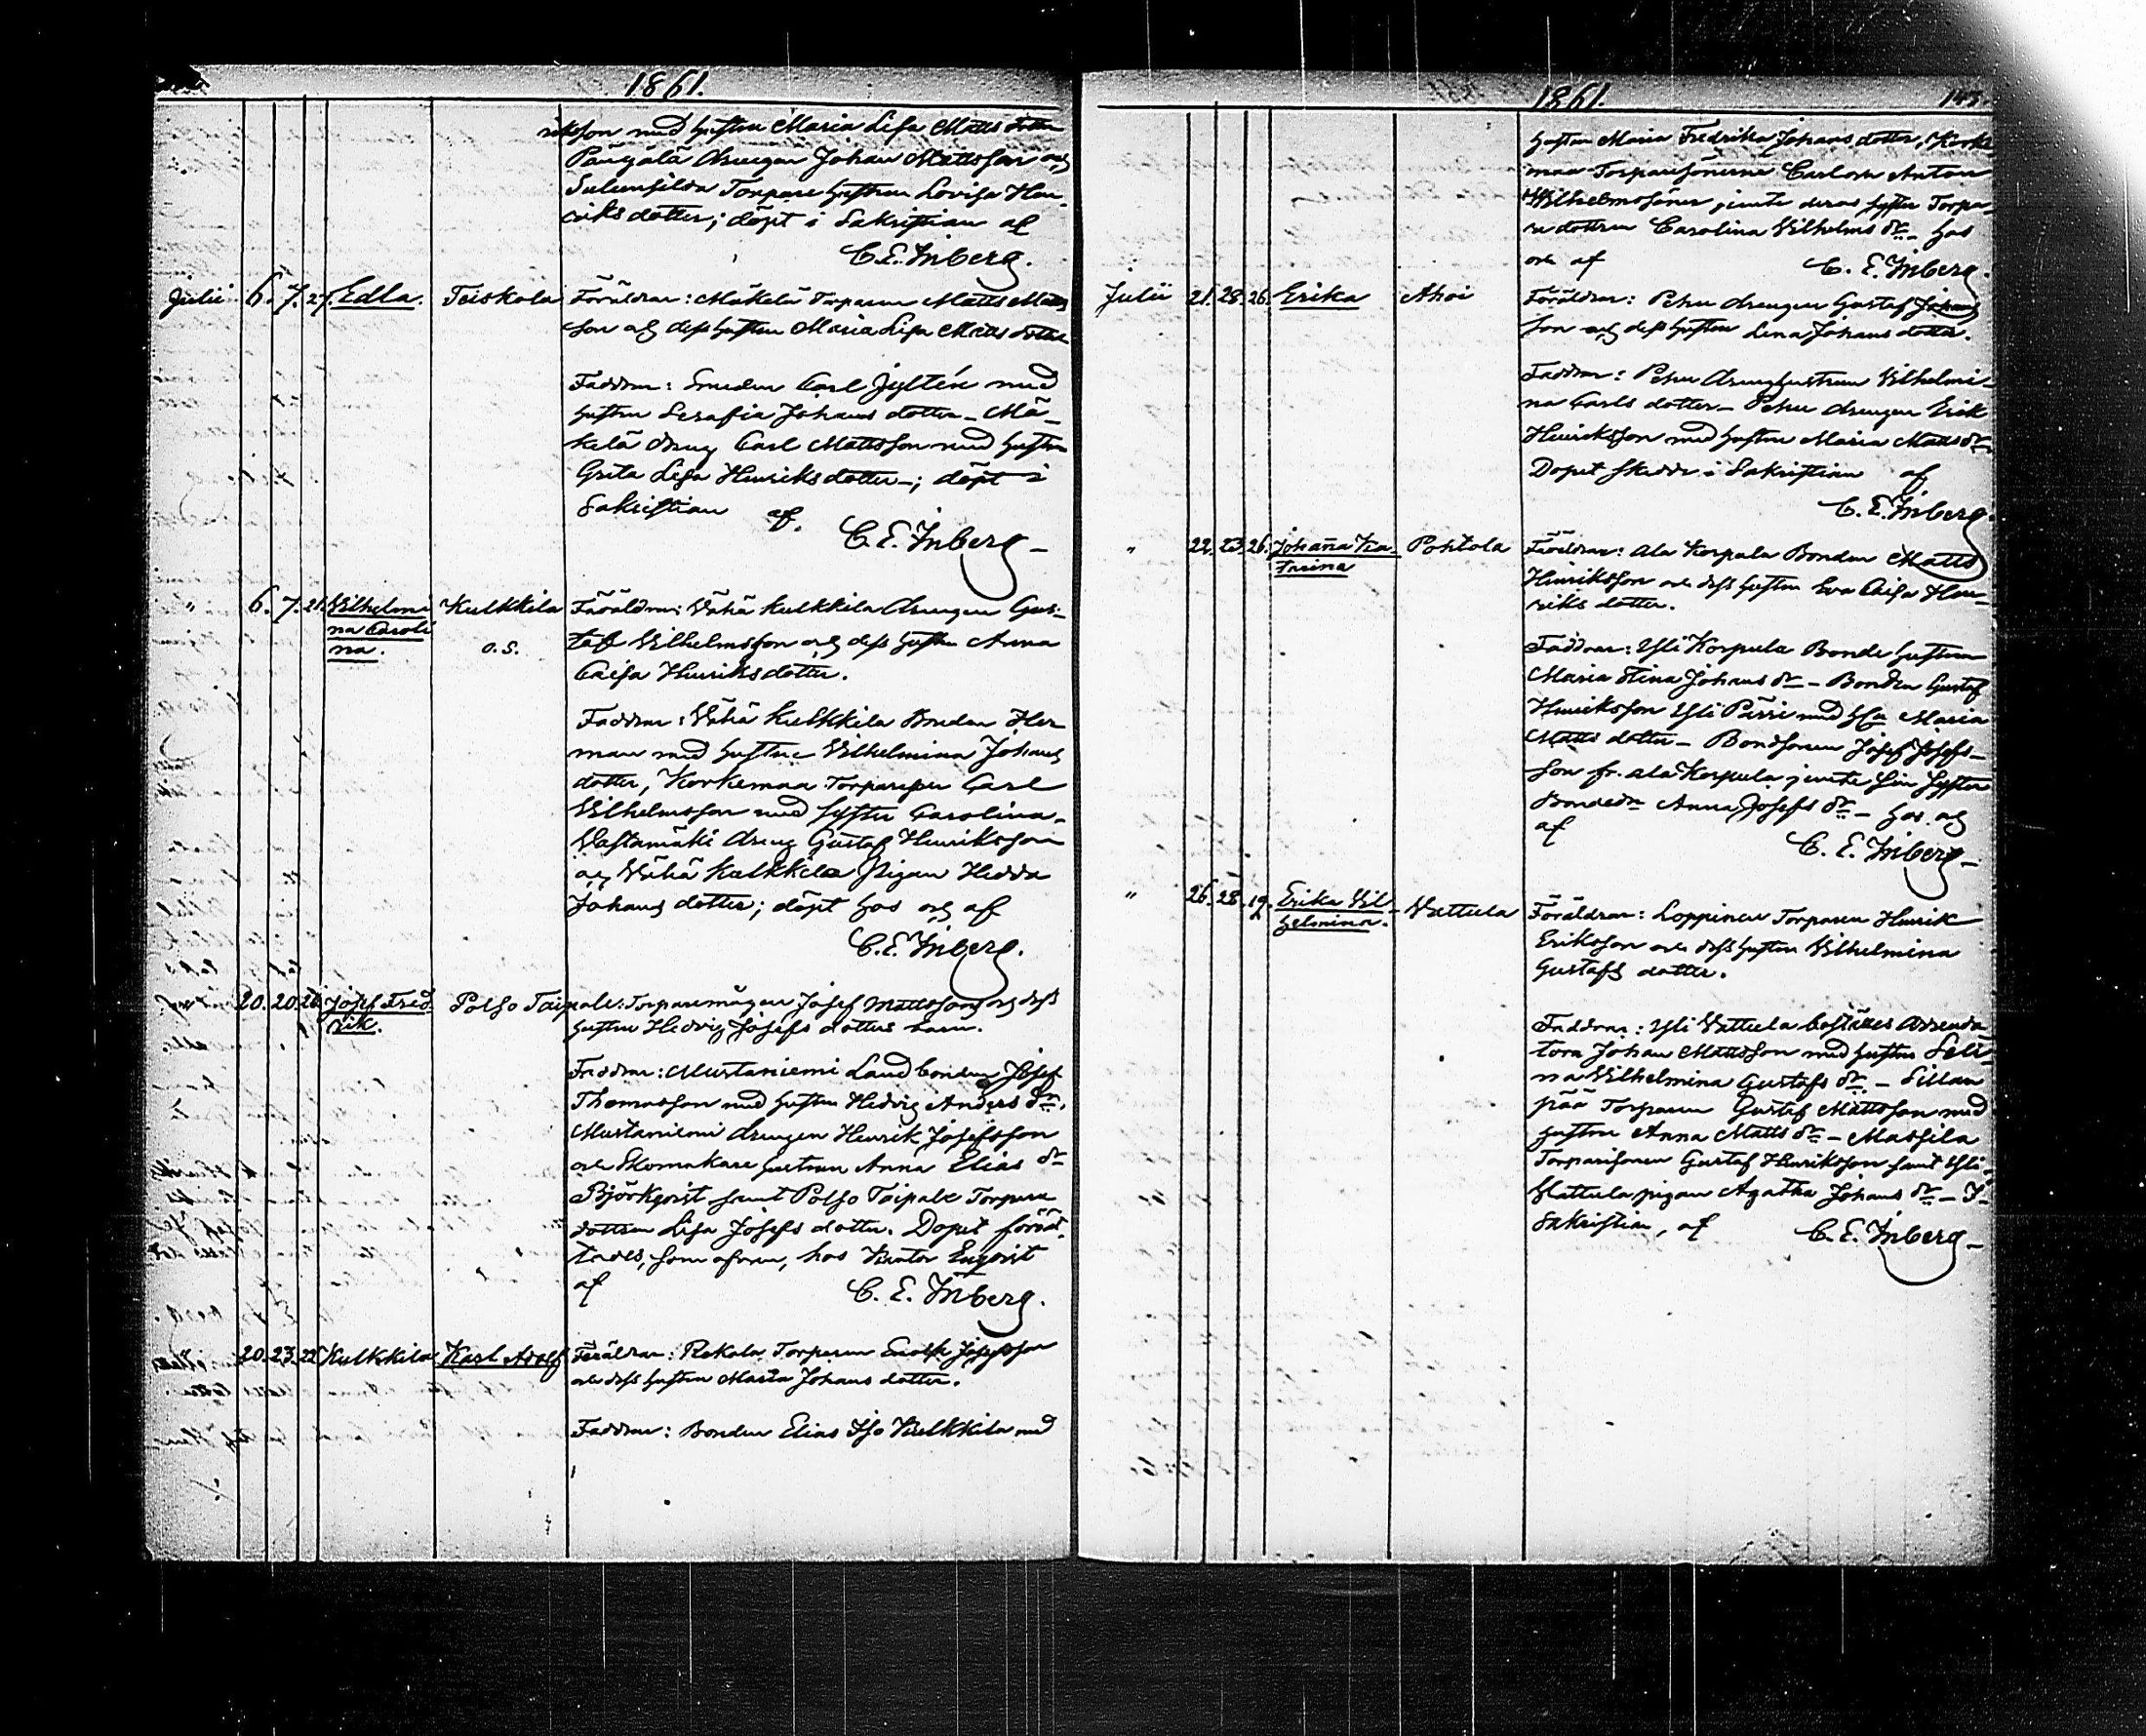 1861.
riksson med hustru Maria Lisa Matts dotter
Pängälä drengen Johan Mattsson och
Torpare hustrun Lovisa Hen-
riks dotter; döpt i Sakristian af
C. E. Inberg.
Julii 6. 7. 27. Edla. Teiskola Föräldrar: Mäkelä Torparen Matts Matts
son och dess hustru Maria Lisa Matts dotter
Faddrar: Smeden Carl Jyltén med
hustru Serafia Johans dotter – Mä-
kelä dreng Carl Mattsson med hustru
Greta Lisa Henriks dotter –; döpt i
Sakristian af.
C. E. Inberg –
" 6. 7. 21. Vilhelmi Kulkkila Föräldrar: Vähä Kulkkila drengen Gus-
na Caroli o. S. taf Vilhelmsson och dess hustru Anna
na. Caisa Henriks dotter.
Faddrar: Vähä Kulkkila Bonden Her
man med hustru Vilhelmina Johans
dotter, Korkemaa Torparson Carl
Vilhelmsson med syster Carolina –
Vastamäki dreng Gustaf Henriksson
och Vähä Kulkkila Pigan Hedda
Johans dotter; döpt hos och af
C. E. Inberg.
20. 20. Josef Fred Polso Taipale: Torparemågen Josef Mattsson och dess
rik. hustru Hedvig Josefs dotters barn.
Faddrar: Mustaniemi Landbonden Josef
Thomasson med hustru Hedvig Anders dr.
Mustaniemi drengen Henrik Josefsson
och Skomakare hustrun Anna Elias dr
Björkqvist samt Polso Taipale Torpare
dottren Lisa Josefs dotter. Dopet förrät-
tades, som ofvan, hos Kantor Enqvist
af C. E. Inberg.
20. 23. 22. Kulkkila Karl Adolf Föräldrar: Rekola Torparen Enok Josefsson
och dess hustru Maria Johans dotter.
Faddrar: Bonden Elias Iso Kulkkila med
1861. 143.
hustru Maria Fredrika Johans dotter, Korke
maa Torparesönerne Carl och Anton
Wilhelmssöner jemte deras syster Torpa-
re dottren Carolina Vilhelms dr – hos
och af C. E. Inberg.
Julii 21. 28. 26. Erika Ahoi Föräldrar: Pehu drengen Gustaf Johans
son och dess hustru Lena Johans dotter.
Faddrar: Pehu drenghustrun Vilhelmi-
na Carls dotter – Pehu drengen Erik
Henriksson med hustru Maria Matts dr.
Dopet skedde i Sakristian af
C. E. Inberg.
" 22. 23. 26. Johanna Ka- Pohtola Föräldrar: Ala Korpula Bonden Matts
trina Henriksson och dess hustru Eva Caisa Hen-
riks dotter.
Faddrar: Yli Korpula Bonde hustrun
Maria Stina Johans dr – Bonden Gustaf
Henriksson Yli Pärri med h:u Maria
Matts dotter – Bondsonen Josef Josefs-
son fr. ala Korpula jemte sin syster
Bondedr Anna Josefs dr – hos och
af C. E. Inberg –
" 26. 28. 19. Erika Vil- Vattula Föräldrar: Loppinen Torparen Henrik
helmina. Eriksson och dess hustru Vilhelmina
Gustafs dotter.
Faddrar: Yli Vattula boställes Arrenda
torn Johan Mattsson med hustru Seli-
na Wilhelmina Gustafs dr – Sillan
pää Torparen Gustaf Mattsson med
hustru Anna Matts dr – Massila
Torparesonen Gustaf Henriksson samt Yli
Vattula pigan Agatha Johans dr – I
Sakristian, af C. E. Inberg –